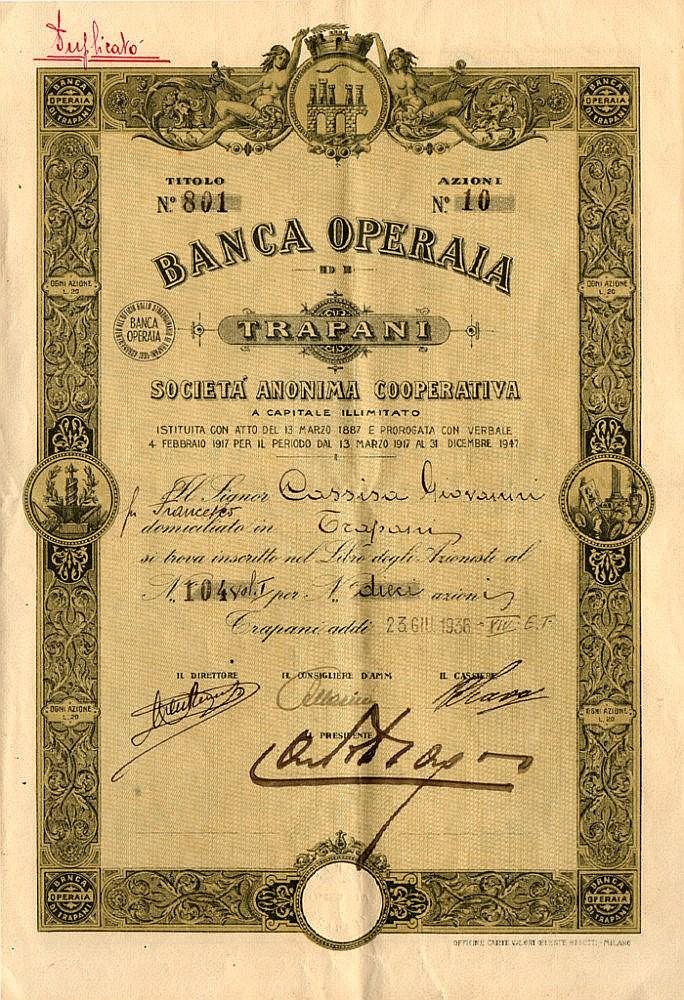 Duplicato
BANCA OPERAIA DI TRAPANI
BANCA OPERAIA DI TRAPANI
TITOLO
Nº 801
AZIONI
Nº 10
BANCA OPERAIA
DI
TRAPANI
OGNI AZIONE
L. 20
OGNI AZIONE
L. 20
BANCA
OPERAIA
SOCIETÀ ANONIMA COOPERATIVA
A CAPITALE ILLIMITATO
ISTITUITA CON ATTO DEL 13 MARZO 1887 E PROROGATA CON VERBALE
4 FEBBRAIO 1917 PER IL PERIODO DAL 13 MARZO 1917 AL 31 DICEMBRE 1947
Il Signor Cassisa Giovanni
fu Francesco
domiciliato in Trapani
si trova inscritto nel Libro degli Azionisti al
N. 104 vol. I per N. dieci azioni
Trapani addì 23 GIU 1936 - XIV E.F.
IL DIRETTORE
IL CONSIGLIERE D'AMM
IL CASSIERE
OGNI AZIONE
L. 20
OGNI AZIONE
L. 20
PRESIDENTE
BANCA OPERAIA DI TRAPANI
BANCA OPERAIA DI TRAPANI
OFFICINE CARTE VALORI - MILANO